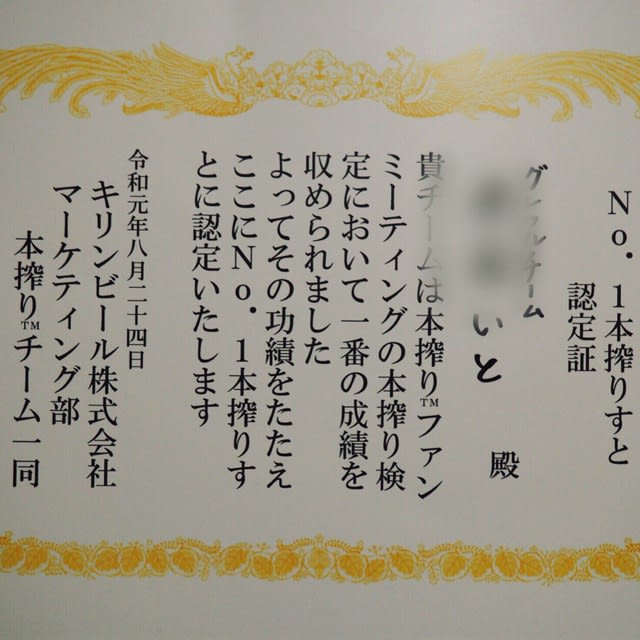 No．1本搾りすと
認定証
グレフルチーム
いと
殿
貴チームは本搾り™ファン
ミーティングの本搾り検
定において一番の成績を
収められました
よってその功績をたたえ
ここにNo．1本搾りす
とに認定いたします
令和元年八月二十四日
キリンビール株式会社
マーケティング部
本搾り™チーム一同